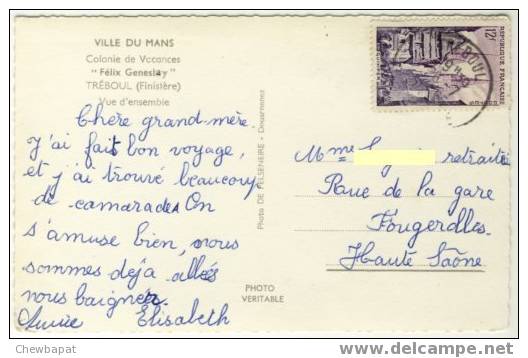 VILLE DU MANS
Colonie de Vacances
"Félix Geneslay"
TRÉBOUL (Finistère)
Vue d'ensemble
Chère grand-mère.
J'ai fait bon voyage,
et j'ai trouvé beaucoup
de camarades On
s'amuse bien, nous
sommes déja allés
nous baigner.
Elisabeth
Photo DE FELSENEIRE - Douarnenez
PHOTO
VERITABLE
12F
REPUBLIQUE FRANÇAISE
TREBOUL
Mme retraitée
Rue de la gare
Fougerolles
Haute Saône
Chewbapat
delcampe.net